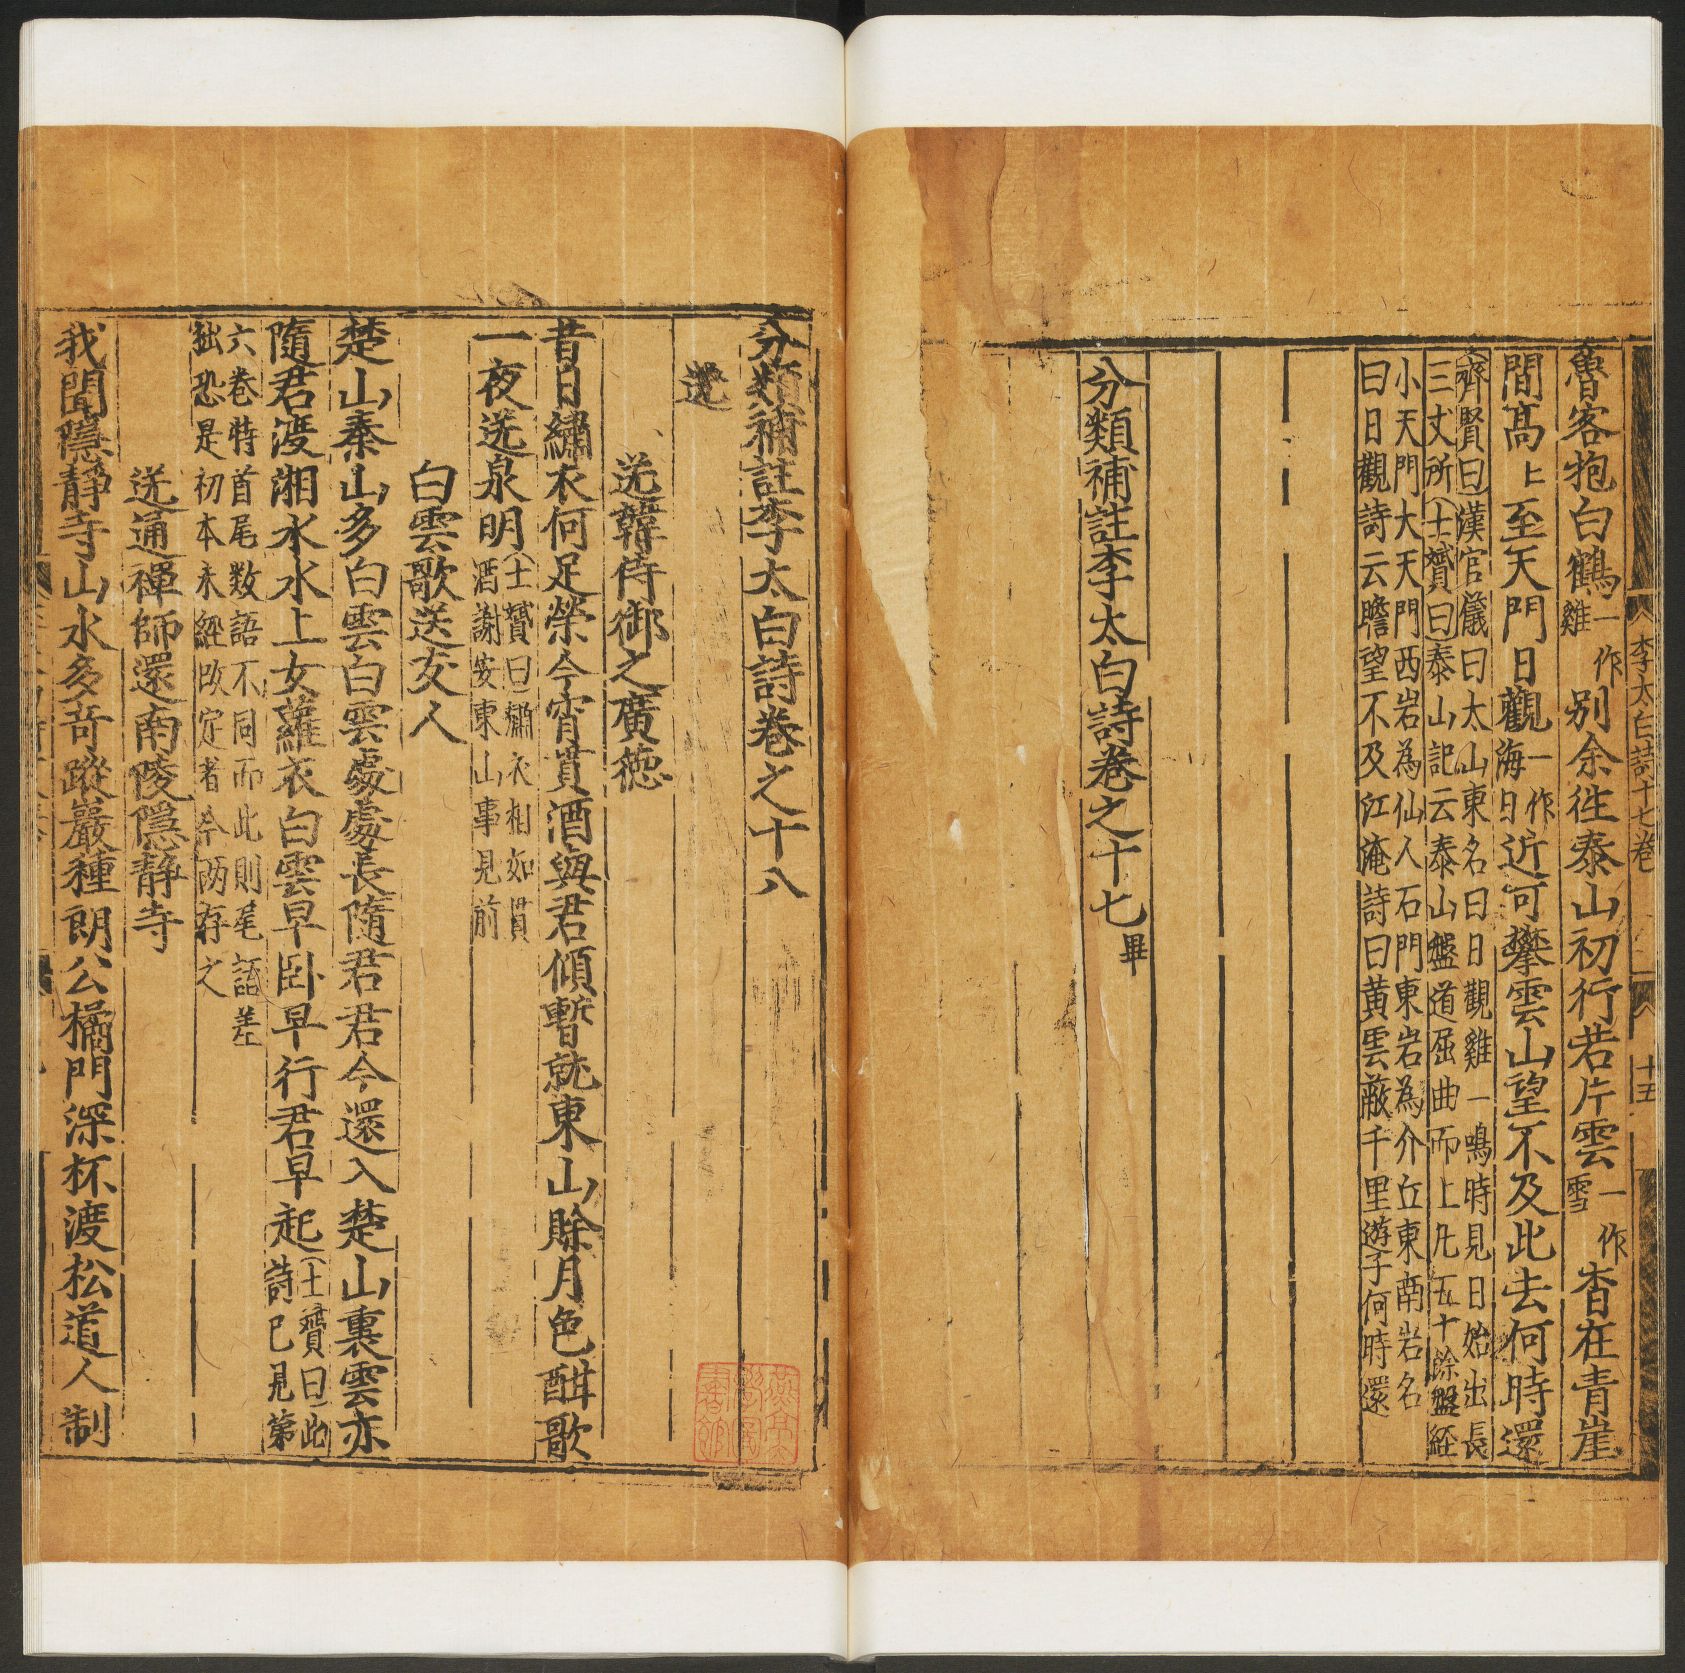 李太白詩十七卷
十五
魯客抱白鶴一作雞别余徃泰山初行若片雲一作雪杳在青崖
間高上至天門日觀一作海日近可攀雲山望不及此去何時還
齊賢曰漢官儀曰太山東名曰日觀雞一鳴時見日始出長
三丈所士贇曰泰山記云泰山盤道屈曲而上凡五十餘盤経
小天門大天門西岩為仙人石門東岩為介丘東南岩名
曰日觀詩云瞻望不及江淹詩曰黃雲蔽千里遊子何時還
分類補註李太白詩巻之十七畢
分類補註李太白詩巻之十八
送
送韓侍御之廣德
昔日繡衣何足榮今宵貰酒與君傾暫就東山賖月色酣歌
一夜送泉明士贇曰繡衣相如貰
酒謝安東山事見前
白雲歌送友人
楚山秦山多白雲白雲處處長隨君君今還入楚山裏雲亦
隨君渡湘水水上女蘿衣白雲早卧早行君早起士贇曰此
詩已見第
六巻特首尾数語不同而此則尾語差
拙恐是初本未經改定者今兩存之
送通禪師還南陵隱静寺
我聞隱静寺山水多竒蹤巖種朗公橘門深杯渡松道人制